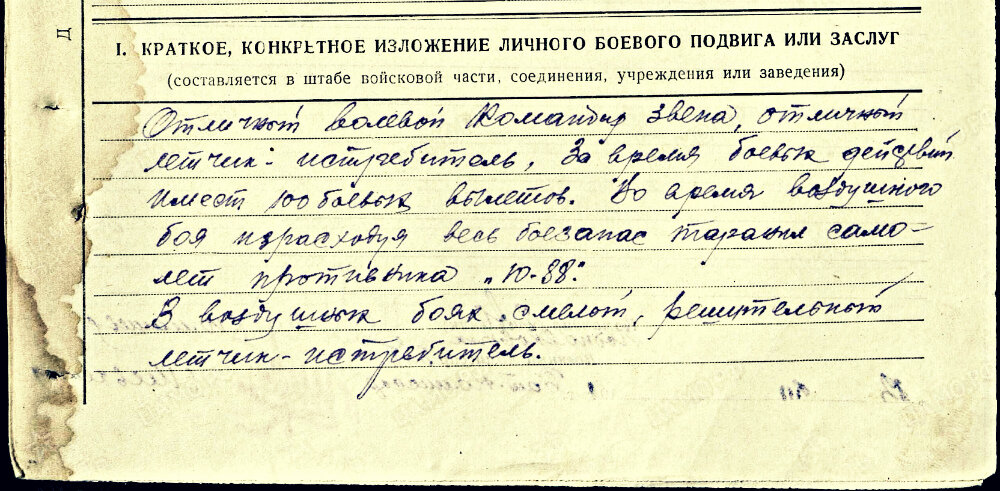 Д
I. КРАТКОЕ, КОНКРЕТНОЕ ИЗЛОЖЕНИЕ ЛИЧНОГО БОЕВОГО ПОДВИГА ИЛИ ЗАСЛУГ
(составляется в штабе войсковой части, соединения, учреждения или заведения)
Отличный волевой Командир звена, отличный
летчик-истребитель, За время боевых действий
Имеет 100 боевых вылетов. Во время воздушного
боя израсходуя весь боезапас таранил само=
лет противника „Ю-88".
В воздушных боях смелый, решительный
летчик-истребитель.